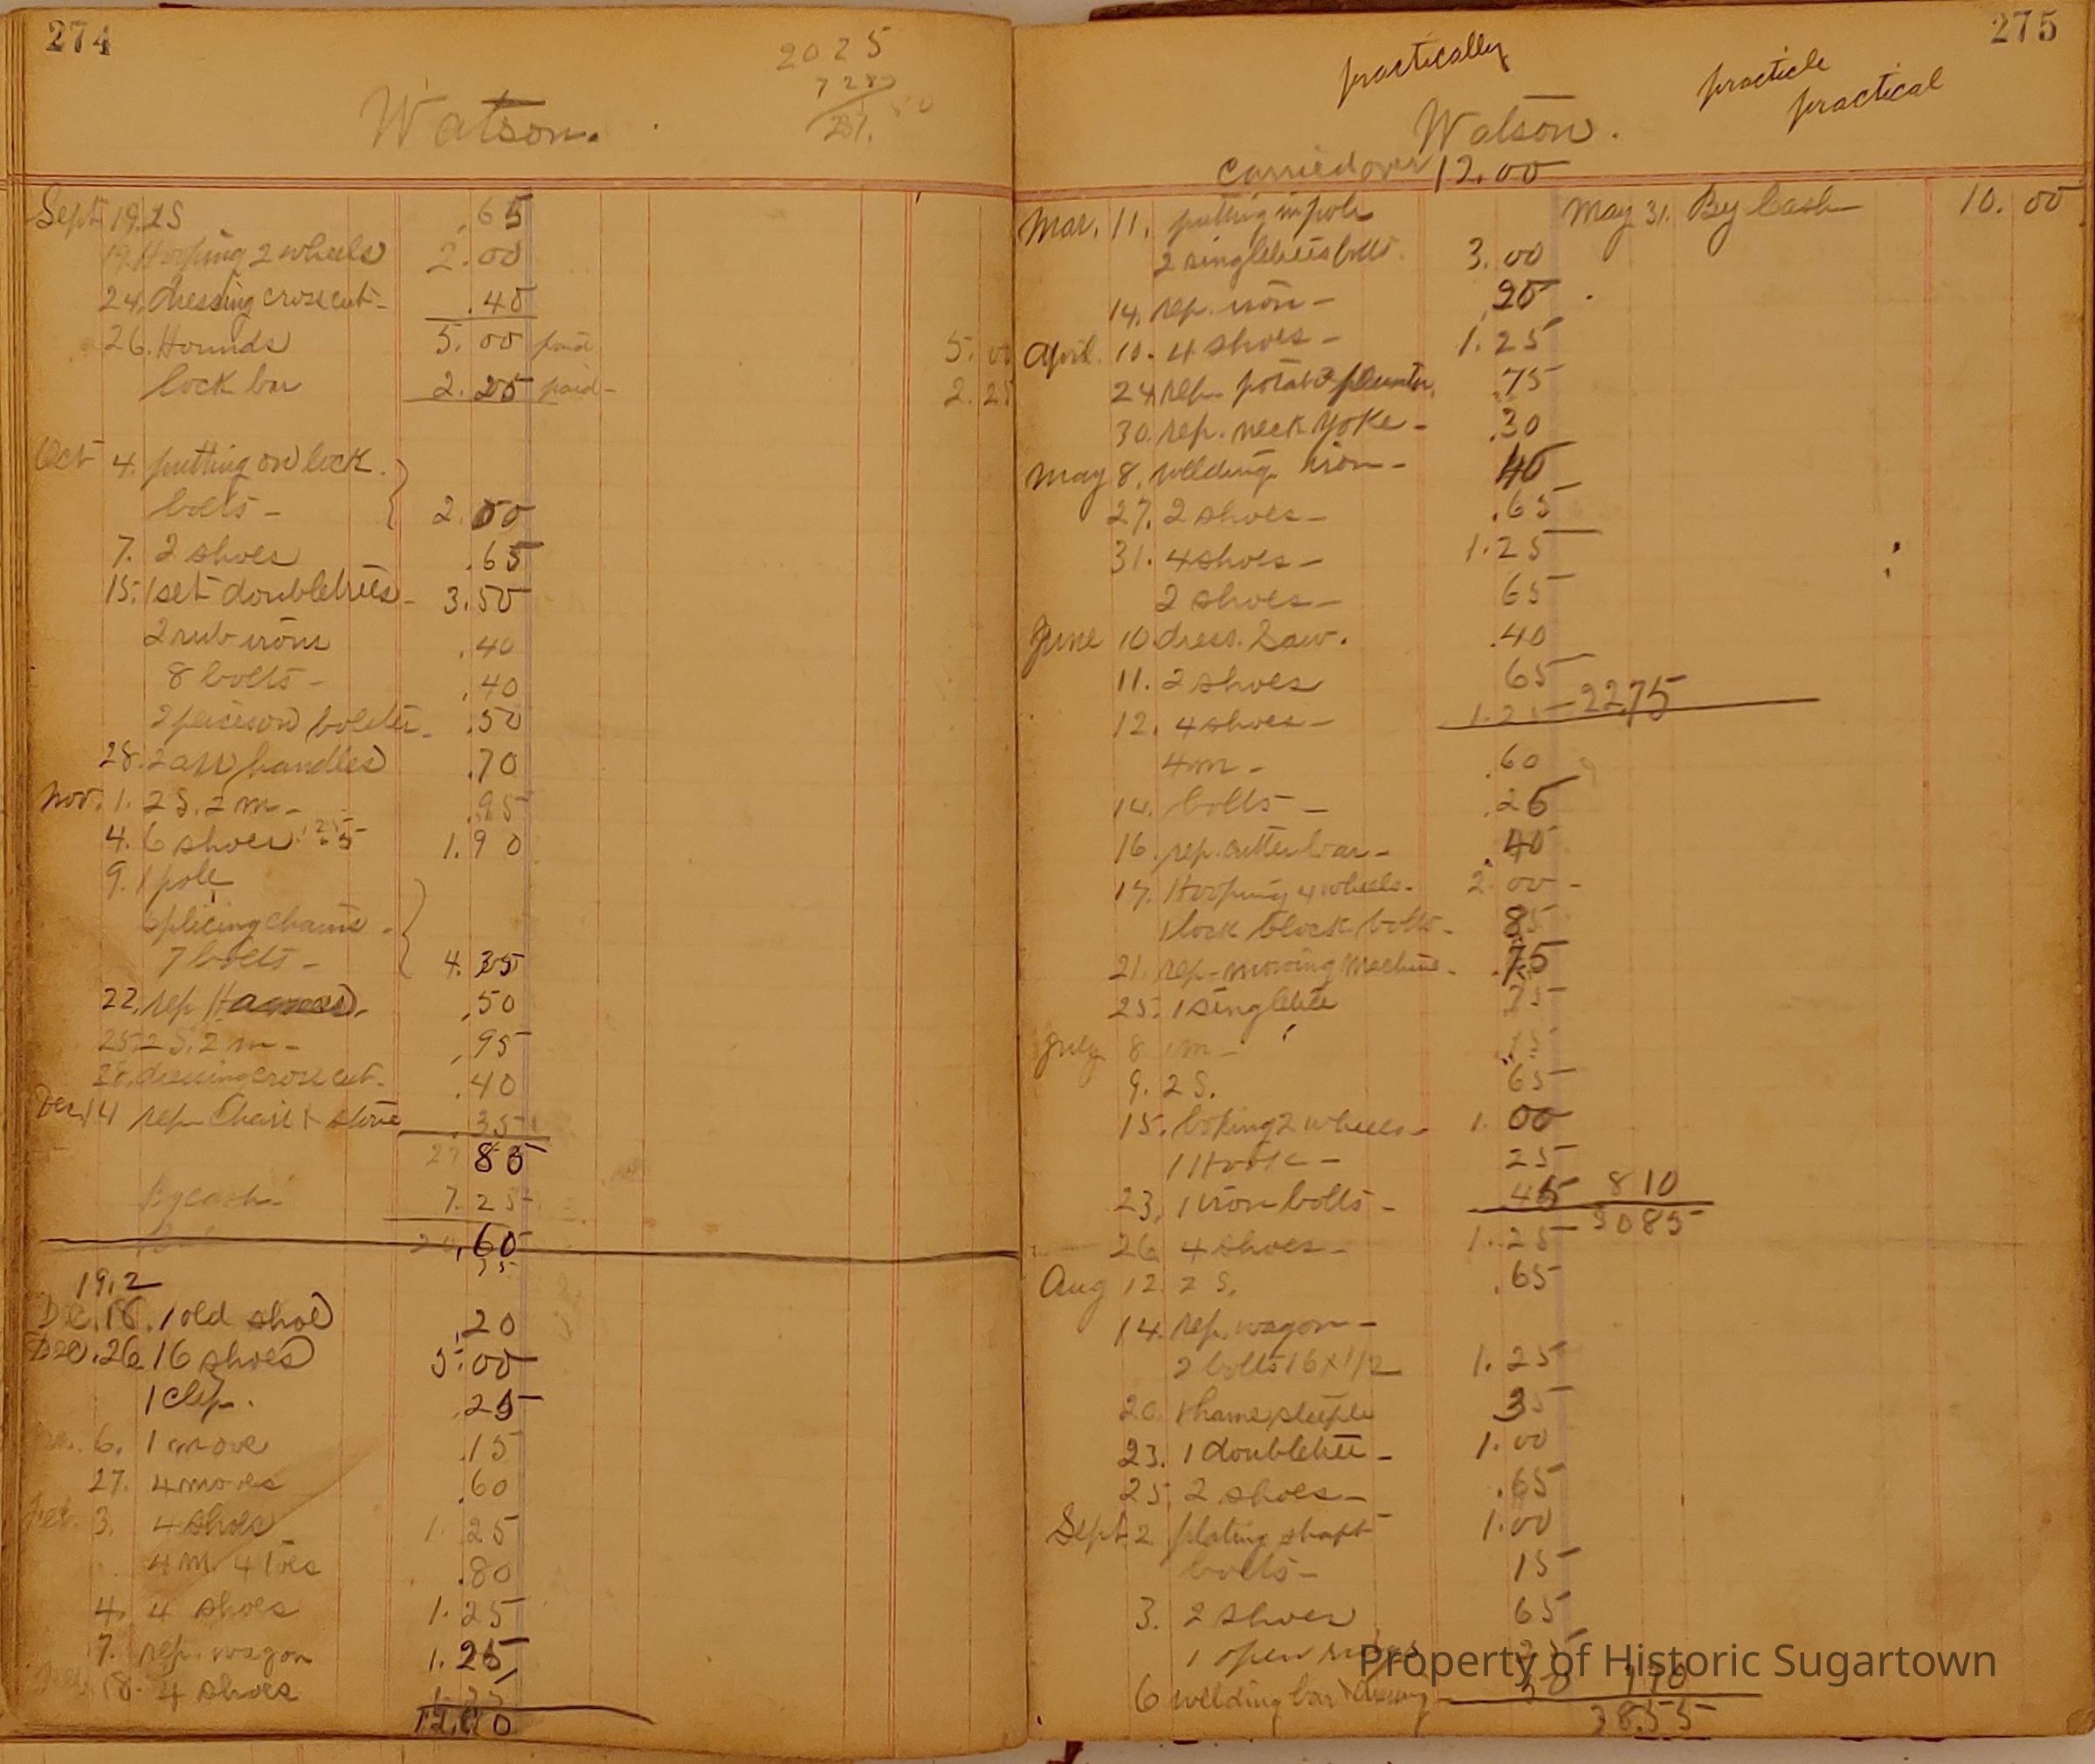 274
2025
Watson.
Sept 19. 2 S .65
19. Hooping 2 wheels 2.00
24. dressing cross cut - .40
26. Hounds 5.00 paid 5.00
lock bar 2.25 paid - 2.25
Oct 4. putting on lock.
bolts - 2.00
7. 2 shoes .65
15. 1 set doubletrees - 3.50
2 rub irons .40
8 bolts - .40
2 on bolster - .50
28. 2 handles .70
Nov. 1. 2 S. 2 m - .95
4. 6 shoes 1.90
9. 1 pole
splicing chains -
7 bolts - 4.35
22. rep .50
25. 2 S. 2 m - .95
dressing cross cut - .40
Dec 14 rep Chair + stove .35
27 85
By cash - 7.25
20.60
1912
Dec. 18. 1 old shoe .20
Dec. 26. 16 shoes 5.00
1 Clip. .25
6. 1 move .15
27. 4 moves .60
Feb. 3. 4 shoes 1.25
4 m. 4 toes .80
4. 4 shoes 1.25
7. rep. wagon 1.25
18. 4 shoes 1.25
275
practically
practicle
practical
Watson.
Carried over 12.00
Mar. 11. putting in pole May 31. By Cash 10.00
2 singletrees bolts 3.00
14. rep. iron -
April 10. 4 shoes - 1.25
24. rep. potato planter .75
30. rep. neck yoke - .30
May 8. welding iron - 40
27. 2 shoes - .65
31. 4 shoes - 1.25
2 shoes - 65
June 10. dress. Saw. .40
11. 2 shoes 65
12. 4 shoes - 1.25 2275
4 m - .60
14. bolts - .25
16. rep. cutter bar - .40
17. Hooping 4 wheels - 2.00 -
1 lock block bolts - 85
21. rep - mowing machine - .75
25. 1 singletree 75
July 8 1 m - 15
9. 2 S. 65
15. 2 wheels - 1.00
1 Hook - 25
23. 1 iron bolts - 45 810
3085
26 4 shoes - 1.25
Aug 12. 2 S. .65
14. rep. wagon -
2 bolts 16 x 1/2 1.25
20. 1 hame steeple 35
23. 1 doubletree - 1.00
25. 2 shoes - .65
Sept 2 plating shaft 1.00
bolts - 15
3. 2 shoes 65
1 open 25
6 welding bar 770
38.55
Property of Historic Sugartown